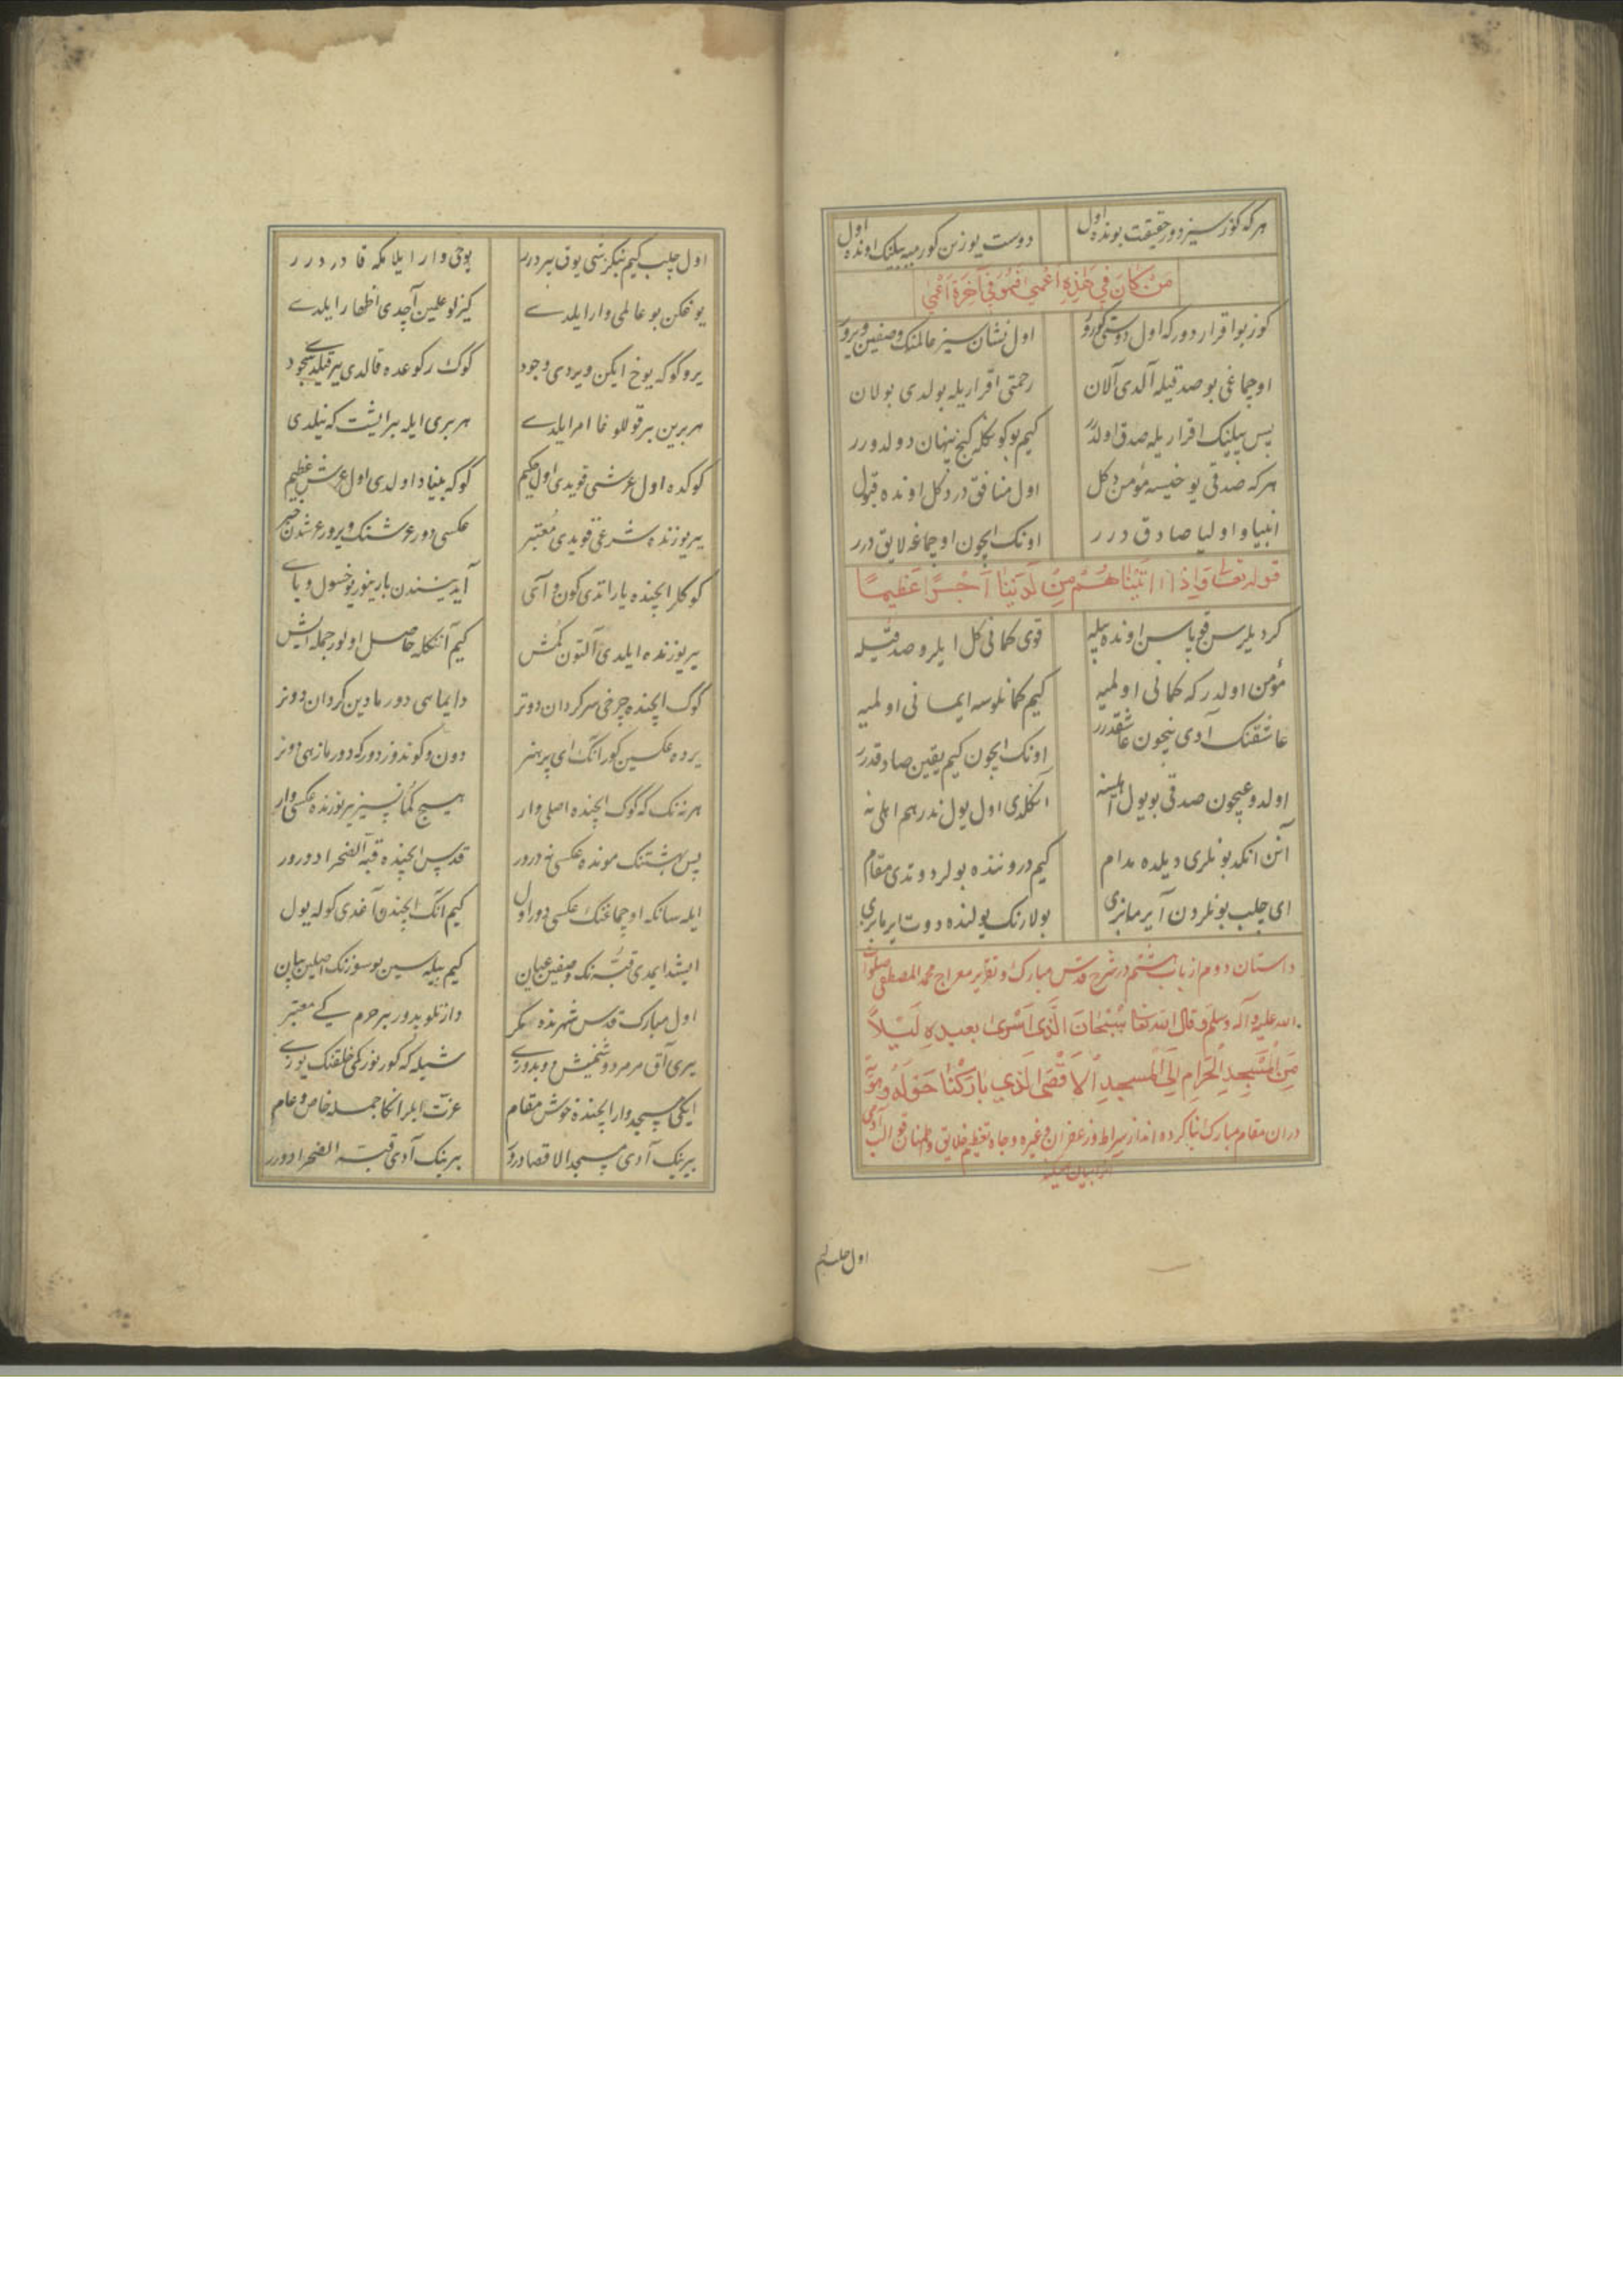 هر که کوزسیز دور حقیقت بونده اول دوست یوزین کورمیه بیلنک اونده اول
مَنْ كَانَ فِي هٰذِهِ اَعْمٰى فَهُوَ فِي آخِرَةِ اَعْمٰى
کوز بو اقرار دور که اول دوستی کورر اول نشان سیز عالمنک وصفین ویرر
اوچماغی بو صدقیله آلدی آلان رحمتی اقراریله بولدی بولان
پس بیلینک اقراریله صدق اولدر کیم بو کوکلکه کنج پنهان دولدورر
هر که صدقی یوخیسه مؤمن دکل اول منافق در دکل اونده قبول
انبیا و اولیا صادق درر اونک ایچون اوچماغه لایق درر
قوله تعالی وَاِذًا اٰتَيْنَاهُمْ مِنْ لَدُنَّا اَجْرًا عَظِيمًا
کر دیلرسن قویاسن اونده بیله قوی کمانی کل ایلرو صدقیله
مؤمن اولدر که کمانی اولمیه کیم کمانلوسه ایمانی اولمیه
عاشقنک آدی نیچون عاشقدرر اونک ایچون کیم یقین صادقدرر
اولدوغیچون صدقی بو یول اهلینه آنکلدی اول یول ندر هم اهلی نه
آنن انکد بونلری دیلده مدام کیم دروننده بولر دوتدی مقام
ای چلب بونلردن آیرما بزی بولارنک یولنده دوت ایرما بزی
داستان دوم از باب هشتم در شرح قدس مبارک و تقریر معراج محمد المصطفی صلوات
الله علیه و آله وسلم و قال الله تعالی سُبْحَانَ الَّذِي اَسْرٰى بِعَبْدِهِ لَيْلاً
مِنَ الْمَسْجِدِ الْحَرَامِ اِلَى الْمَسْجِدِ الْاَقْصَى الَّذِي بَارَكْنَا حَوْلَهُ
در ان مقام مبارک بنا کرده اند از صراط و زعفران و غیره و جاه تعظیم خلایق
اول چلب کیم
اول چلب کیم نیکزشی یوق بیر درر یوخی وار ایلامکه قادر درر
یوغکن بو عالمی وار ایلدی کیزلو علمین آچدی اظهار ایلدی
یر و کوکه یوخ ایکن ویردی وجود کوک رکوعده قالدی یر قیلدی سجود
هر برین بر قوللوغا امر ایلدی هر بری ایله بر ایشت که نیلدی
کوکده اول عرشی قویدی اول حکیم کوکه بنیاد اولدی اول عرش عظیم
یر یوزنده شرعی قویدی معتبر عکسی دور عرشنک ویرور عرشدن خبر
کوکلر ایچنده یاراتدی کون و آی آیدینندن بارینور یوخسول و بای
یر یوزنده ایلدی آلتون کمش کیم آنکله حاصل اولور جمله ایش
کوک ایچنده چرخی سرکردان دونر دایما سی دور مادین کردان دونر
یرده عکسین کور انک ای پر هنر دون و کوندوز دور که دورمازهی دونر
هر نه نک که کوک ایچنده اصلی وار هیچ کمانسیز یر یوزنده عکسی وار
پس بهشتنک مونده عکسی نه درور قدس ایچنده قبة الصخرا دورور
ایله سانکه اوچماغنک عکسی دور اول کیم انک ایچندن آغدی کوکه یول
ایشد ایمدی قبه نک وصفین عیان کیم بیله سین بو سوزنک اصلین بیان
اول مبارک قدس شهرنده مکر وار
یری آق مرمر دوشنمیش دوبدوزی شیله که کورنور کمی خلقنک یوزی
ایکی مسجد وار ایچنده خوش مقام عزت ایلر انکا جمله خاص و عام
بیرینک آدی مسجد الاقصا درور بیرینک آدی قبة الصخرا دورر